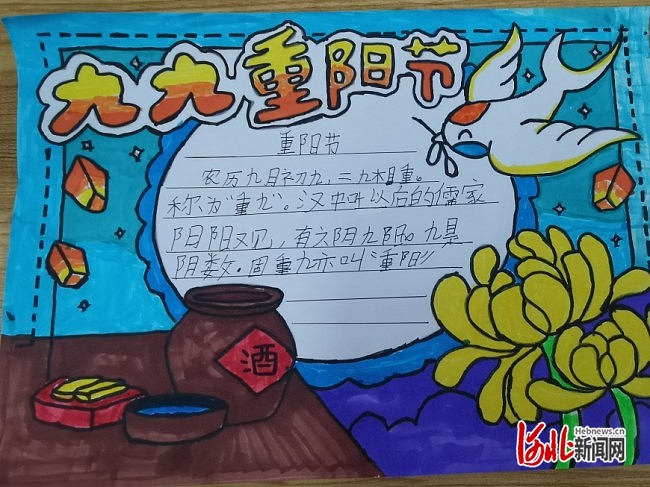 九九重阳节
重阳节
农历九月初九,二九相重。
称为"重九"。汉中叶以后的儒家
阴阳观,有六阴九阳。九是
阳数。固重九亦叫"重阳"
酒
河北新闻网
Hebnews.cn